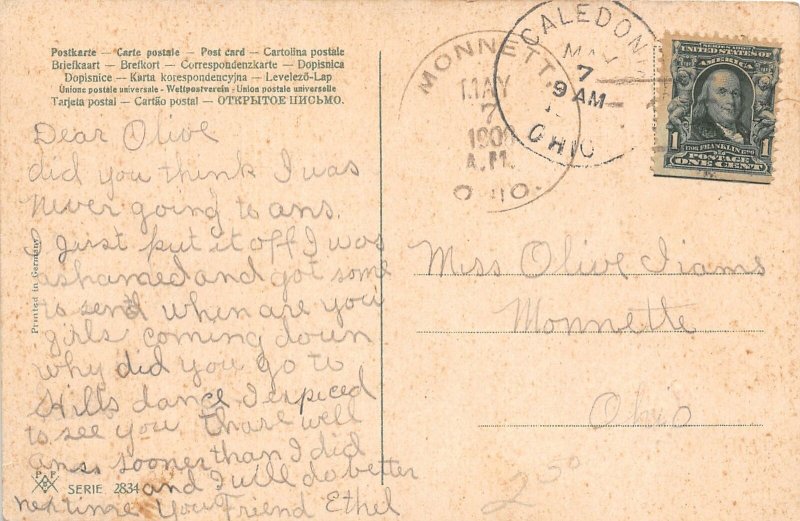 Postkarte — Carte postale — Post card — Cartolina postale
Briefkaart — Brefkort — Correspondenzkarte — Dopisnica
Dopisnice — Karta korespondencyjna — Levelező-Lap
Unione postale universale - Weltpostverein - Union postale universelle
Tarjeta postal — Cartão postal — ОТКРЫТОЕ ПИСЬМО.
MONNETT
MAY
7
A.M.
OHIO.
CALEDONIA
MAY
7
9 AM
OHIO
SERIES 1902
UNITED STATES OF
AMERICA
1 1
FRANKLIN
POSTAGE
ONE CENT
Dear Olive
did you think I was
never going to ans.
I just put it off I was
ashamed and got some
to send when are you
girls coming down
why did you go to
Hills dance I expiced
to see you thare well
ans. sooner than I did
and I will do better
next time your Friend Ethel
Printed in Germany
P F B
SERIE 2834
Miss Olive Iiams
Monnette
Ohio
2 50